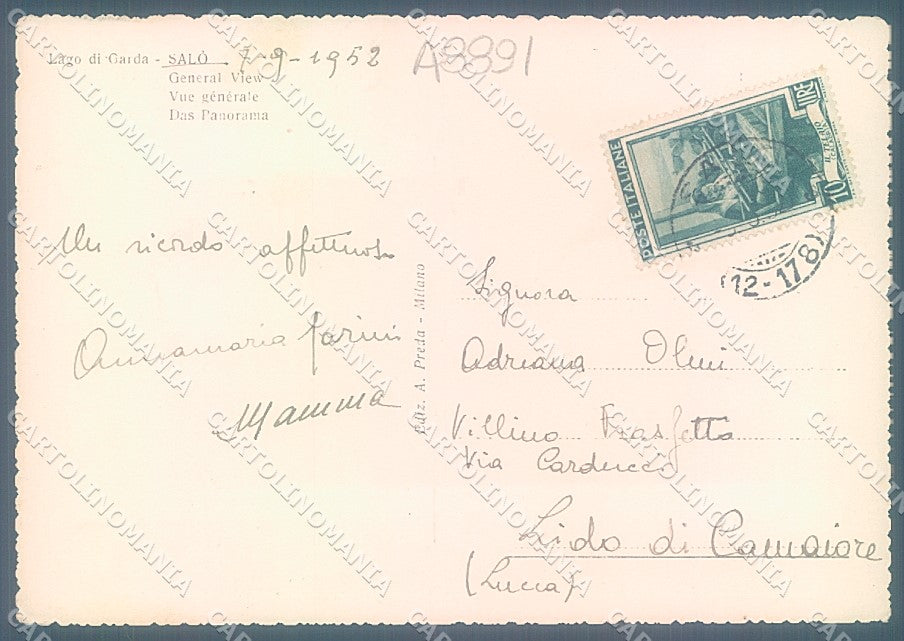 Lago di Garda - SALÒ 7-9-1952
General View
Vue génèrale
Das Panorama
A9891
POSTE ITALIANE
LIRE
10
12-17 8
Un ricordo affettuoso
Annamaria
Mamma
Ediz. A. Preda - Milano
Signora
Adriana Olmi
Villino
Via Carducci
Lido di Camaiore
(Lucca)
CARTOLINOMANIA